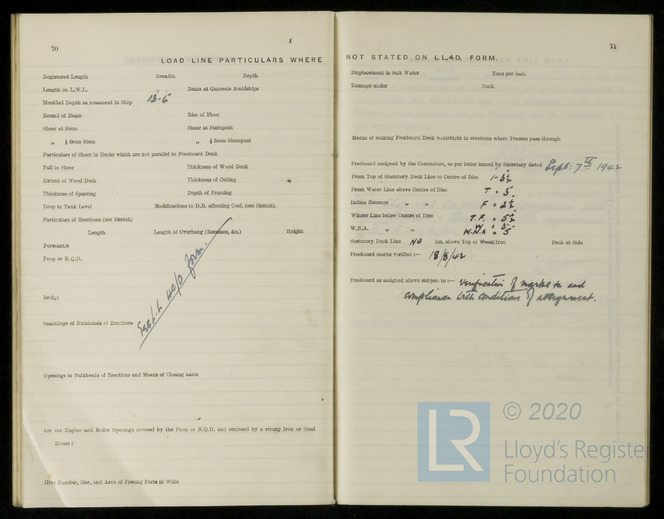 70
LOAD LINE PARTICULARS WHERE
Registered Length Breadth Depth
Length on L.W.L. " " Beam at Gunwale Amidships
Moulded Depth as measured in Ship 12-6
Round of Beam Rise of Floor
Sheer at Stem Sheer at Sternpost
" ⅛ from Stem " ⅛ from Sternpost
Particulars of Sheer in Decks which are not parallel to Freeboard Deck
Fall in Sheer Thickness of Wood Deck
Extent of Wood Deck Thickness of Ceiling
Thickness of Sparring Depth of Framing
Drop to Tank Level Modifications in D.B. affecting Coef. (see Sketch).
Particulars of Erections (see Sketch)
Length Length of Overhang (Recesses, &c.) Height
Forecastle
Poop or R.Q.D.
Bridge
Scantlings of Bulkheads of Erections
form.
Openings in Bulkheads of Erections and Means of Closing same
Are the Engine and Boiler Openings covered by the Poop or R.Q.D. and enclosed by a strong Iron or Steel
House?
Give Number, Size, and Area of Freeing Ports in Wells
71
NOT STATED ON LL.4D. FORM
Displacement in Salt Water Tons per inch
Tonnage under Deck
Means of making Freeboard Deck watertight in erections where Frames pass through
Freeboard assigned by the Committee, as per letter issued by Secretary dated Sept: 7th 1942
From Top of Statutory Deck Line to Centre of Disc
Fresh Water Line above Centre of Disc T =
Indian Summer " " F =
Winter Line below Centre of Disc T.F. =
W.N.A. " " W.N.A =
Statutory Deck Line No ins. above Top of Wood/Iron Deck at Side
Freeboard marks verified :— 18/8/42
Freeboard as assigned above subject to :— verification of marks &c and
compliance with conditions of assignment.
LR
© 2020
Lloyd's Register
Foundation